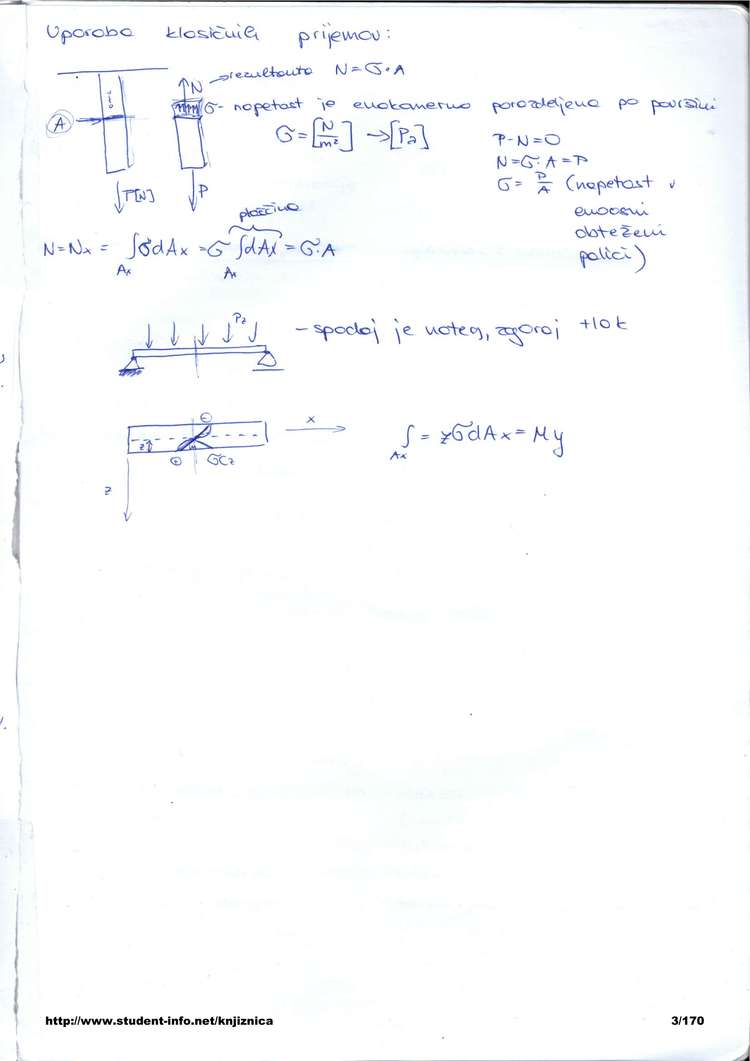 Uporaba klasičnih prijemov:
N → rezultanta N=σ·A
σ - napetost je enakomerno porazdeljena po površini
A
σ=[N/m²] → [Pa]
P-N=0
N=σ·A=P
σ=P/A (napetost v
enoosni
obteženi
palici)
P[N]
P
ploščina
N=Nx = ∫σdAx = σ ∫dAx = σ·A
Ax Ax
Pz
- spodaj je nateg, zgoraj tlak
⊖
x
z
⊕ σ
z
∫ = zσdAx = My
Ax
http://www.student-info.net/knjiznica 3/170